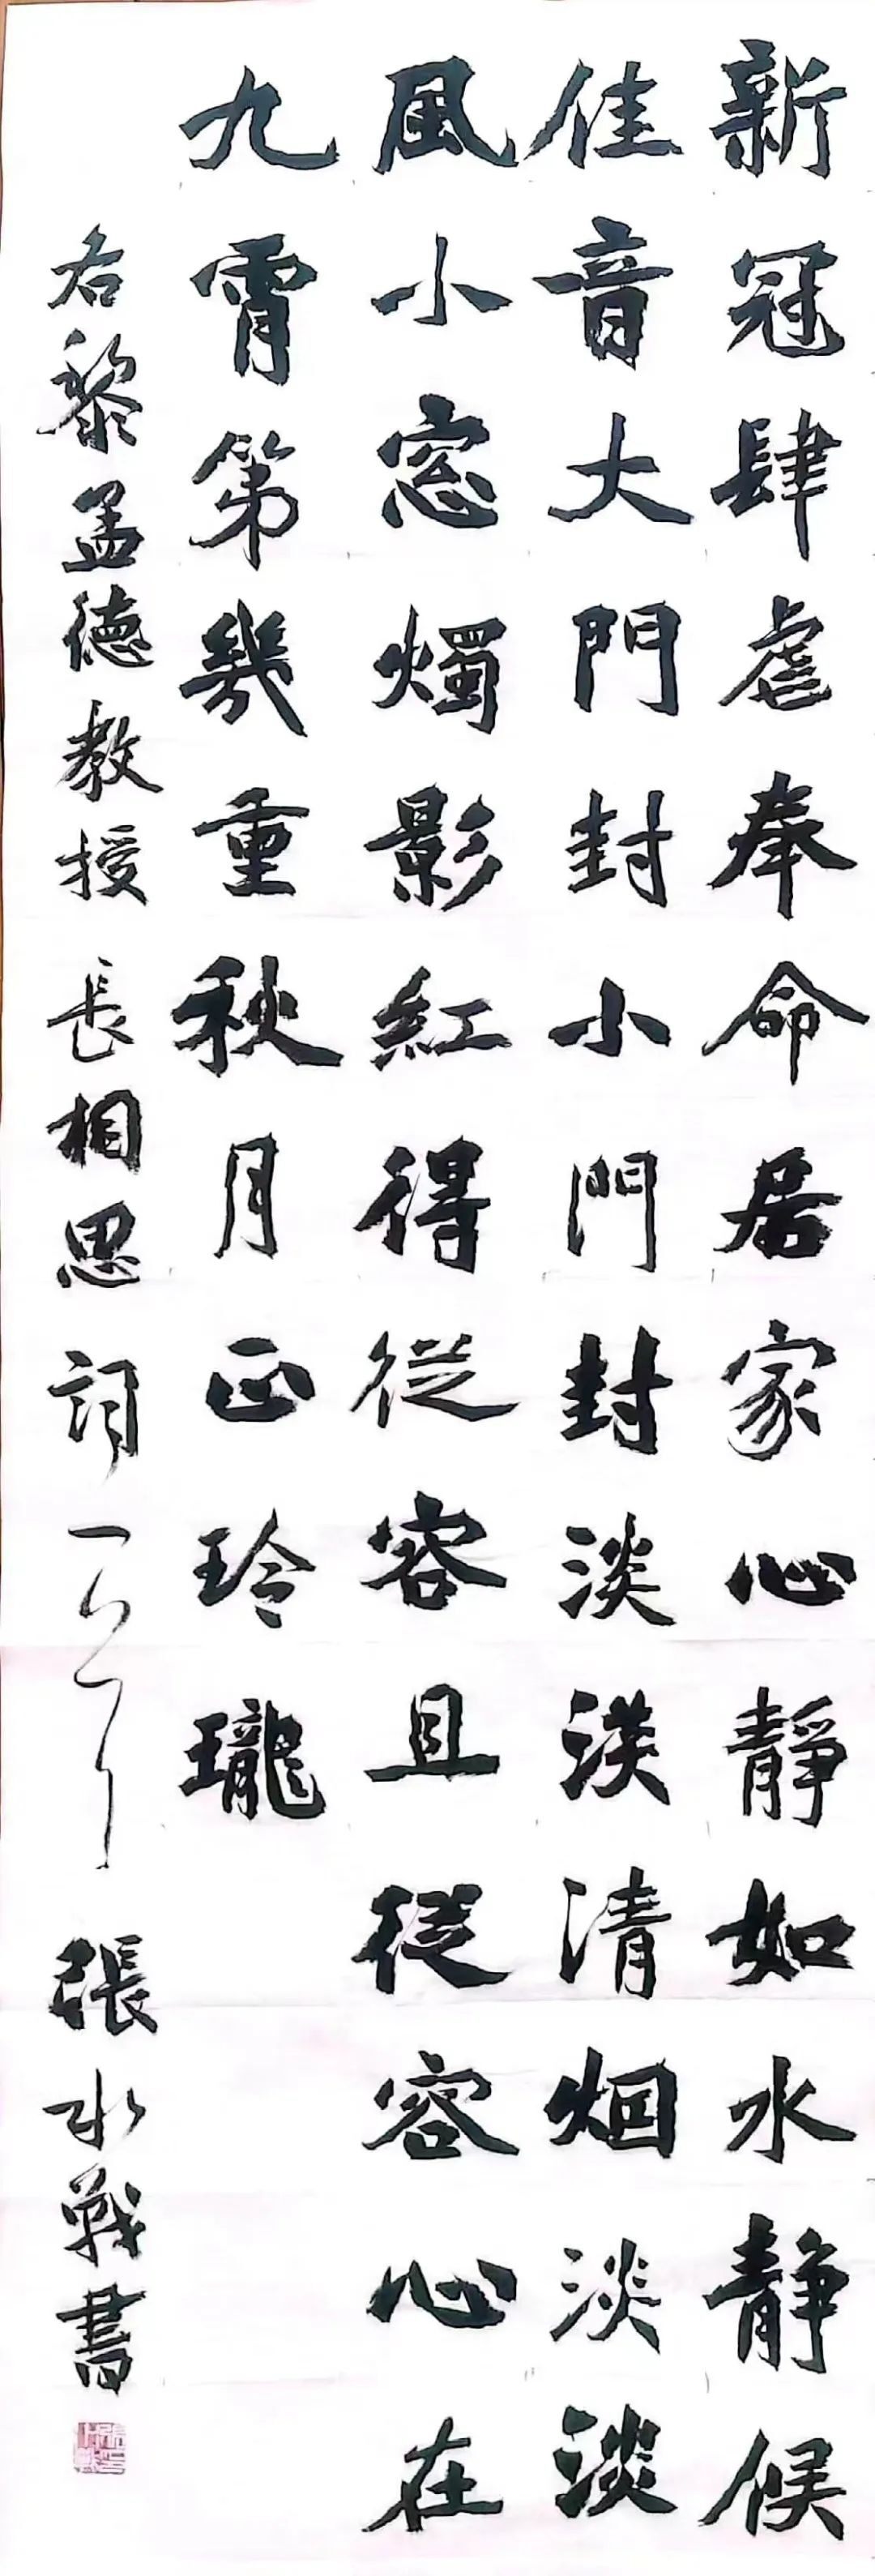 新冠肆虐奉命居家心靜如水静候
佳音大門封小門封淡淡清烟淡淡
風小窓燭影紅得從容且從容心在
九霄第幾重秋月正玲瓏
右黎孟德教授長相思詞一首 張水戰書